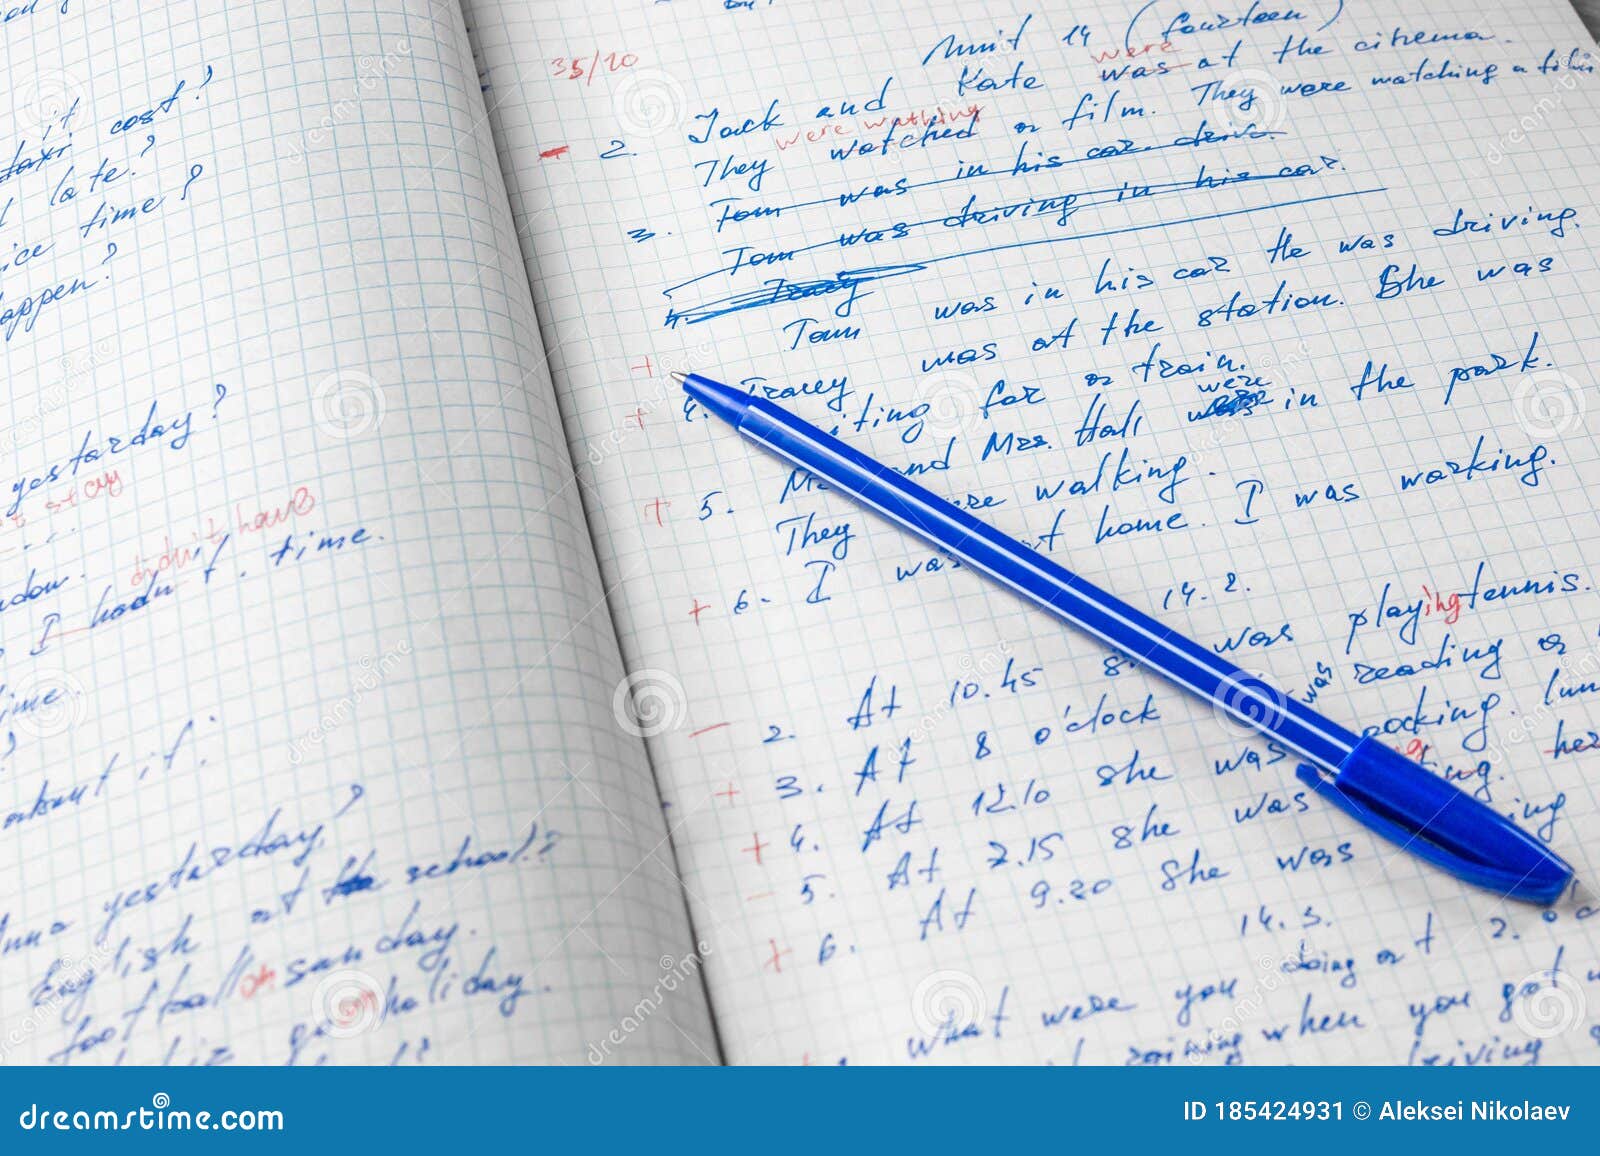 it
taxi cost?
late?
ice time?
appen?
yesterday?
stay
didn't have
dow. I hadn't. time.
ime.
?
about it:
nna yesterday?
English at the school:?
football on sunday.
go on holiday.
35/10
Unit 14 (fourteen)
were
Jack and Kate was at the cinema.
were wathing
- 2. They watched a film. They were watching a film
Tom was in his car. driv.
3. Tom was driving in his car.
4. Tracy
+ Tom was in his car He was driving.
+ 4. Tracey was at the station. She was
iting for a train.
were
+ 5. and Mrs. Hall was in the park.
They were walking.
+ 6. I was at home. I was working.
14.2.
- 2. At 10.45 was playing tennis.
+ 3. At 8 o'clock was reading a
+ 4. At 12.10 she was cooking. lun
- 5. At 7.15 she was ting. her
+ 6. At 9.20 She was ing
14.3.
What were you doing at 2. oc
when you got
driving
dreamstime.com
ID 185424931 © Aleksei Nikolaev